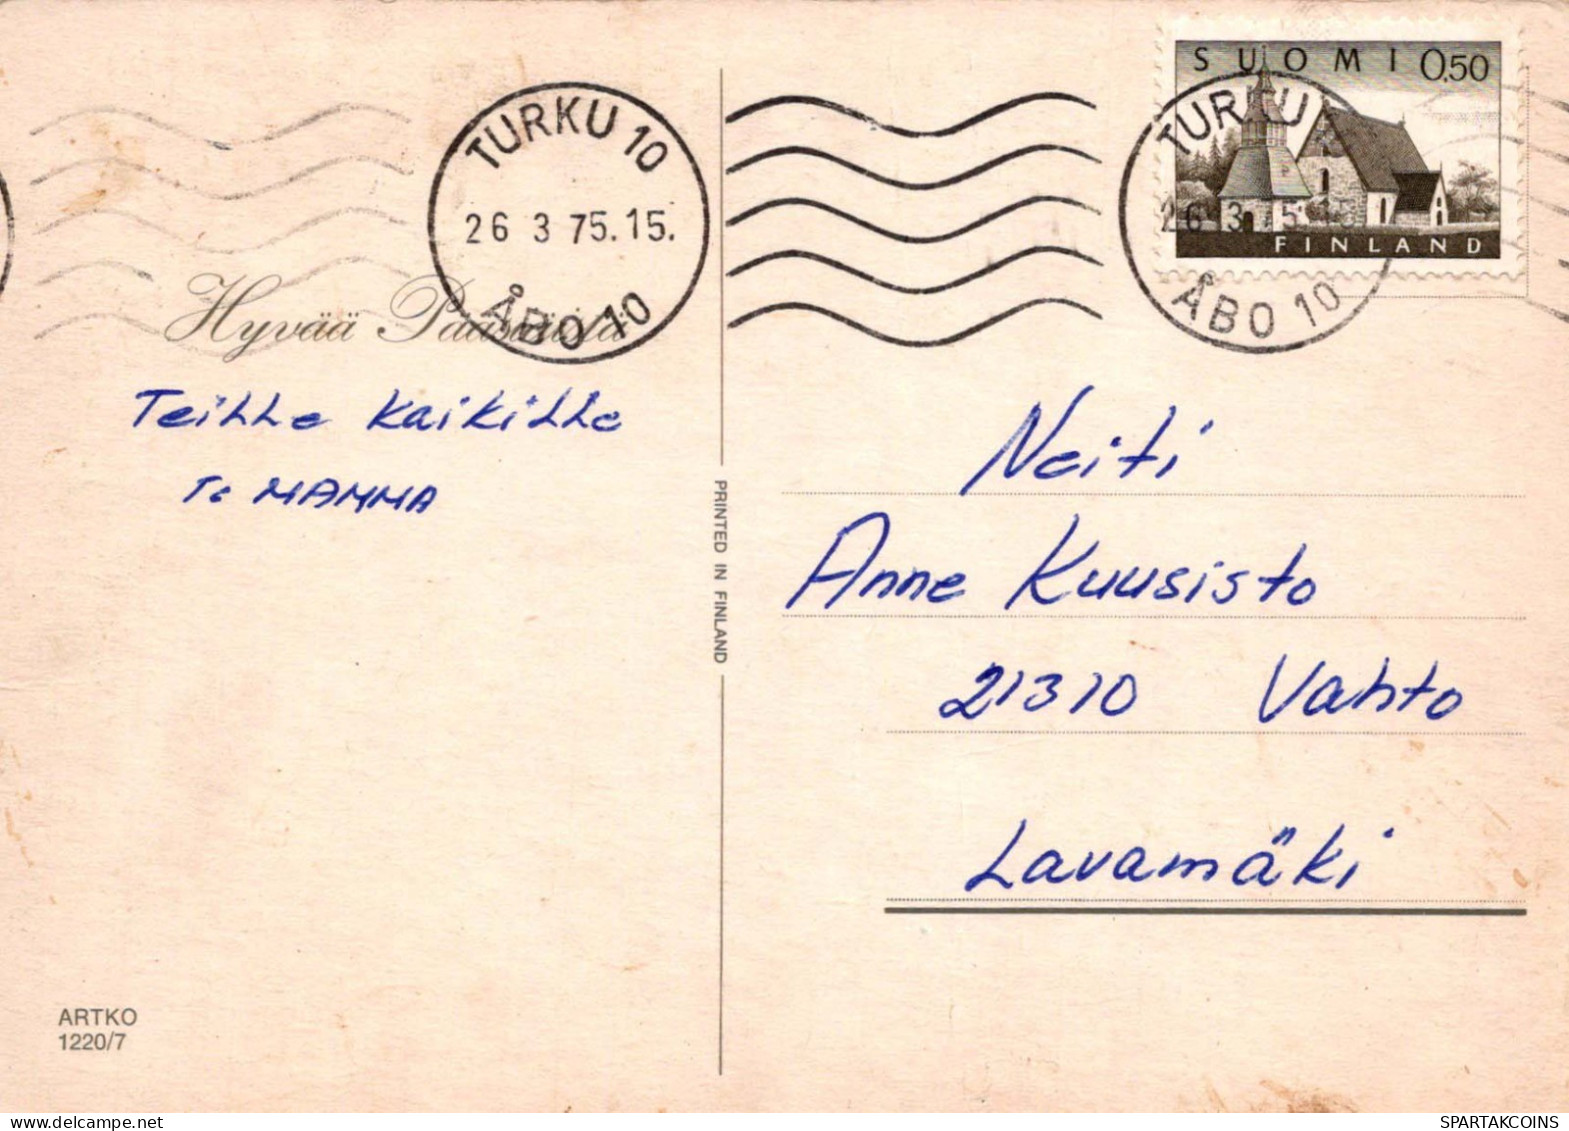 TURKU 10
26 3 75.15.
ÅBO 10
SUOMI 0,50
FINLAND
TURKU
26 3 75.15.
ÅBO 10
Hyvää Pääsiäistä
Teille kaikille
T: MAMMA
PRINTED IN FINLAND
Neiti
Anne Kuusisto
21310 Vahto
Lavamäki
ARTKO
1220/7
SPARTAKCOINS